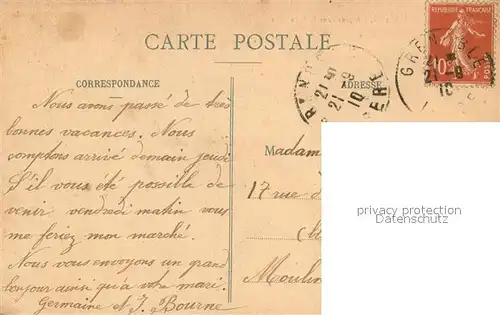 CARTE POSTALE
RÉPUBLIQUE FRANÇAISE
10
CORRESPONDANCE
ADRESSE
21
8
10
GRENOBLE
21 8
10
Nous avons passé de très
bonnes vacances. Nous
comptons arrivé demain jeudi
S'il vous été possible de
venir vendredi matin vous
me feriez mon marché.
Nous vous envoyons un grand
bonjour ainsi qu'a votre mari.
Germaine et J. Bourne
Madam
17 rue d
Moulin
privacy protection
Datenschutz